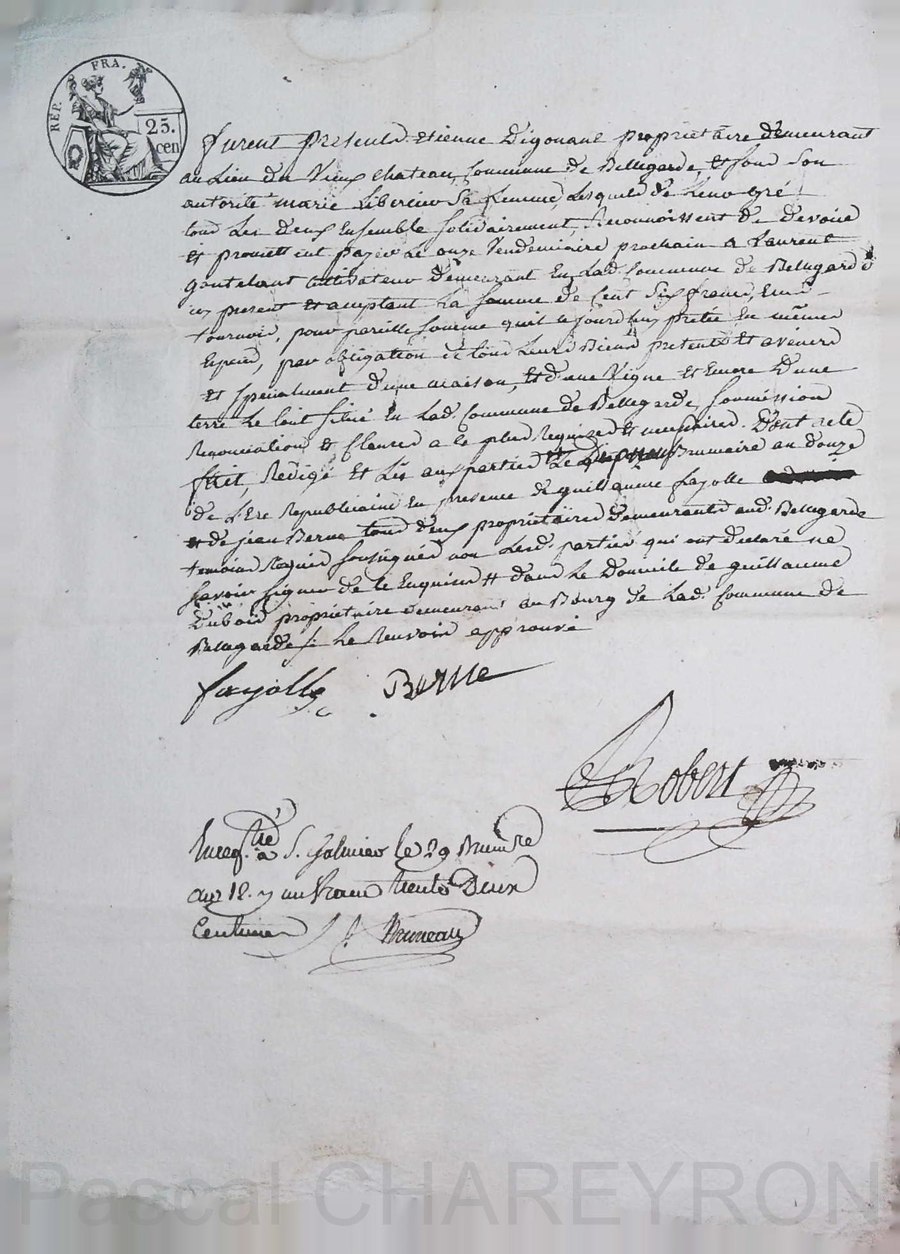 REP. FRA.
25.
cen
furent presents Etienne Digonant proprietaire demeurant
au Lieu du Vieux chateau, Commune de Bellegarde, et sous son
autorité marie Libercier sa femme, Lesquels de Leur gré
tous Les deux Ensemble solidairement, Reconnoissent de devoir
et promettent payer Le onze Vendemiaire prochain a Laurent
cultivateur demeurant En Lad. Commune de Bellegarde
icy present Et acceptant La somme de Cent six francs,
tournois, pour pareille somme quil
Especes, par obligation de tous Leurs Biens presents Et avenirs
Et specialment d'une maison, Et d'une Vigne Et Encore d'une
terre Le tout situé En Lad. Commune de Bellegarde, soumission
Renonciation Et Clauses a ce plus Requises Et necessaires. Dont acte
fait, Redigé Et Lû aux parties Le Brumaire an douze
de L'Ere Republicaine En presence de guillaume fayolle
Et de jean Berne tous deux proprietaires demeurants aud. Bellegarde
temoins Requis soussignés non Lesd. parties qui ont declaré ne
savoir signer de ce Enquises # dans Le Domicile de guillaume
Dubois proprietaire demeurant au Bourg de Lad. Commune de
Bellegarde /. Le Renvoir approuvé
fayolle Berne
Robert
Enregistré à S. Galmier le 29 Brumre
an 12. un franc trente Deux
Centimes Bruneau
Pascal CHAREYRON